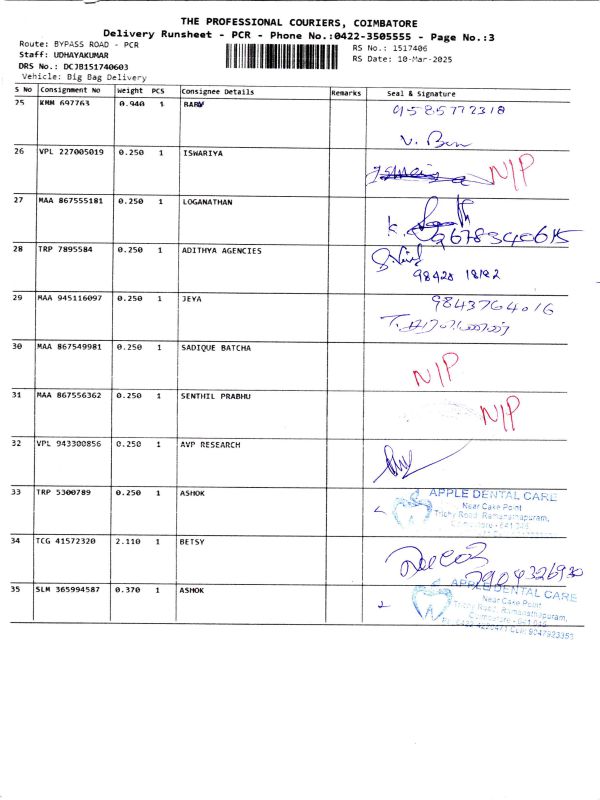 THE PROFESSIONAL COURIERS, COIMBATORE
Delivery Runsheet - PCR - Phone No.:0422-3505555 - Page No.:3
Route: BYPASS ROAD - PCR
RS No.: 1517406
Staff: UDHAYAKUMAR
RS Date: 10-Mar-2025
DRS No.: DCJB151740603
Vehicle: Big Bag Delivery
S No Consignment No Weight PCS Consignee Details Remarks Seal & Signature
25 KMM 697763 0.940 1 BABV 9585772318
26 VPL 227005019 0.250 1 ISWARIYA N/P
27 MAA 867555181 0.250 1 LOGANATHAN K.
28 TRP 7895584 0.250 1 ADITHYA AGENCIES
98428 18182
29 MAA 945116097 0.250 1 JEYA 9843764016
30 MAA 867549981 0.250 1 SADIQUE BATCHA N/P
31 MAA 867556362 0.250 1 SENTHIL PRABHU N/P
32 VPL 943300856 0.250 1 AVP RESEARCH
33 TRP 5300789 0.250 1 ASHOK APPLE DENTAL CARE
Near Cake Point
Trichy Road, Ramanathapuram,
Coimbatore - 641 045
34 TCG 41572320 2.110 1 BETSY
7904326930
35 SLM 365994587 0.370 1 ASHOK APPLE DENTAL CARE
Near Cake Point
Trichy Road, Ramanathapuram,
Coimbatore - 641 045
Cell: 9047923353